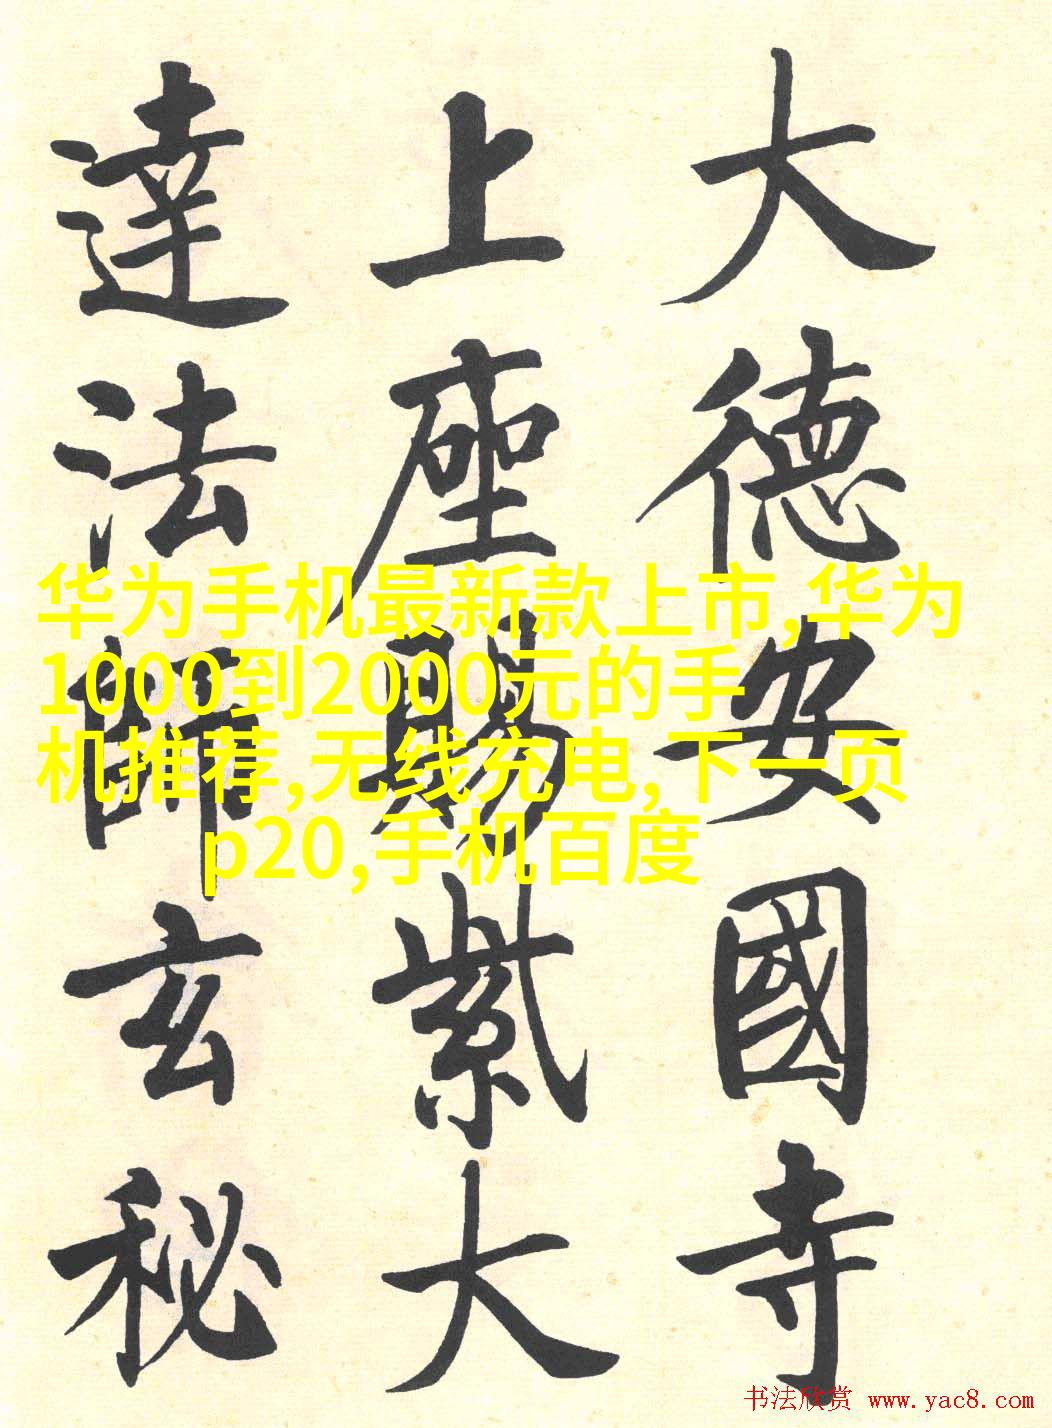 大德安國寺
上座賜紫大
達法師玄秘
华为手机最新款上市,华为
1000到2000元的手
机推荐,无线充电,下一页
p20,手机百度
书法欣赏 www.yac8.com